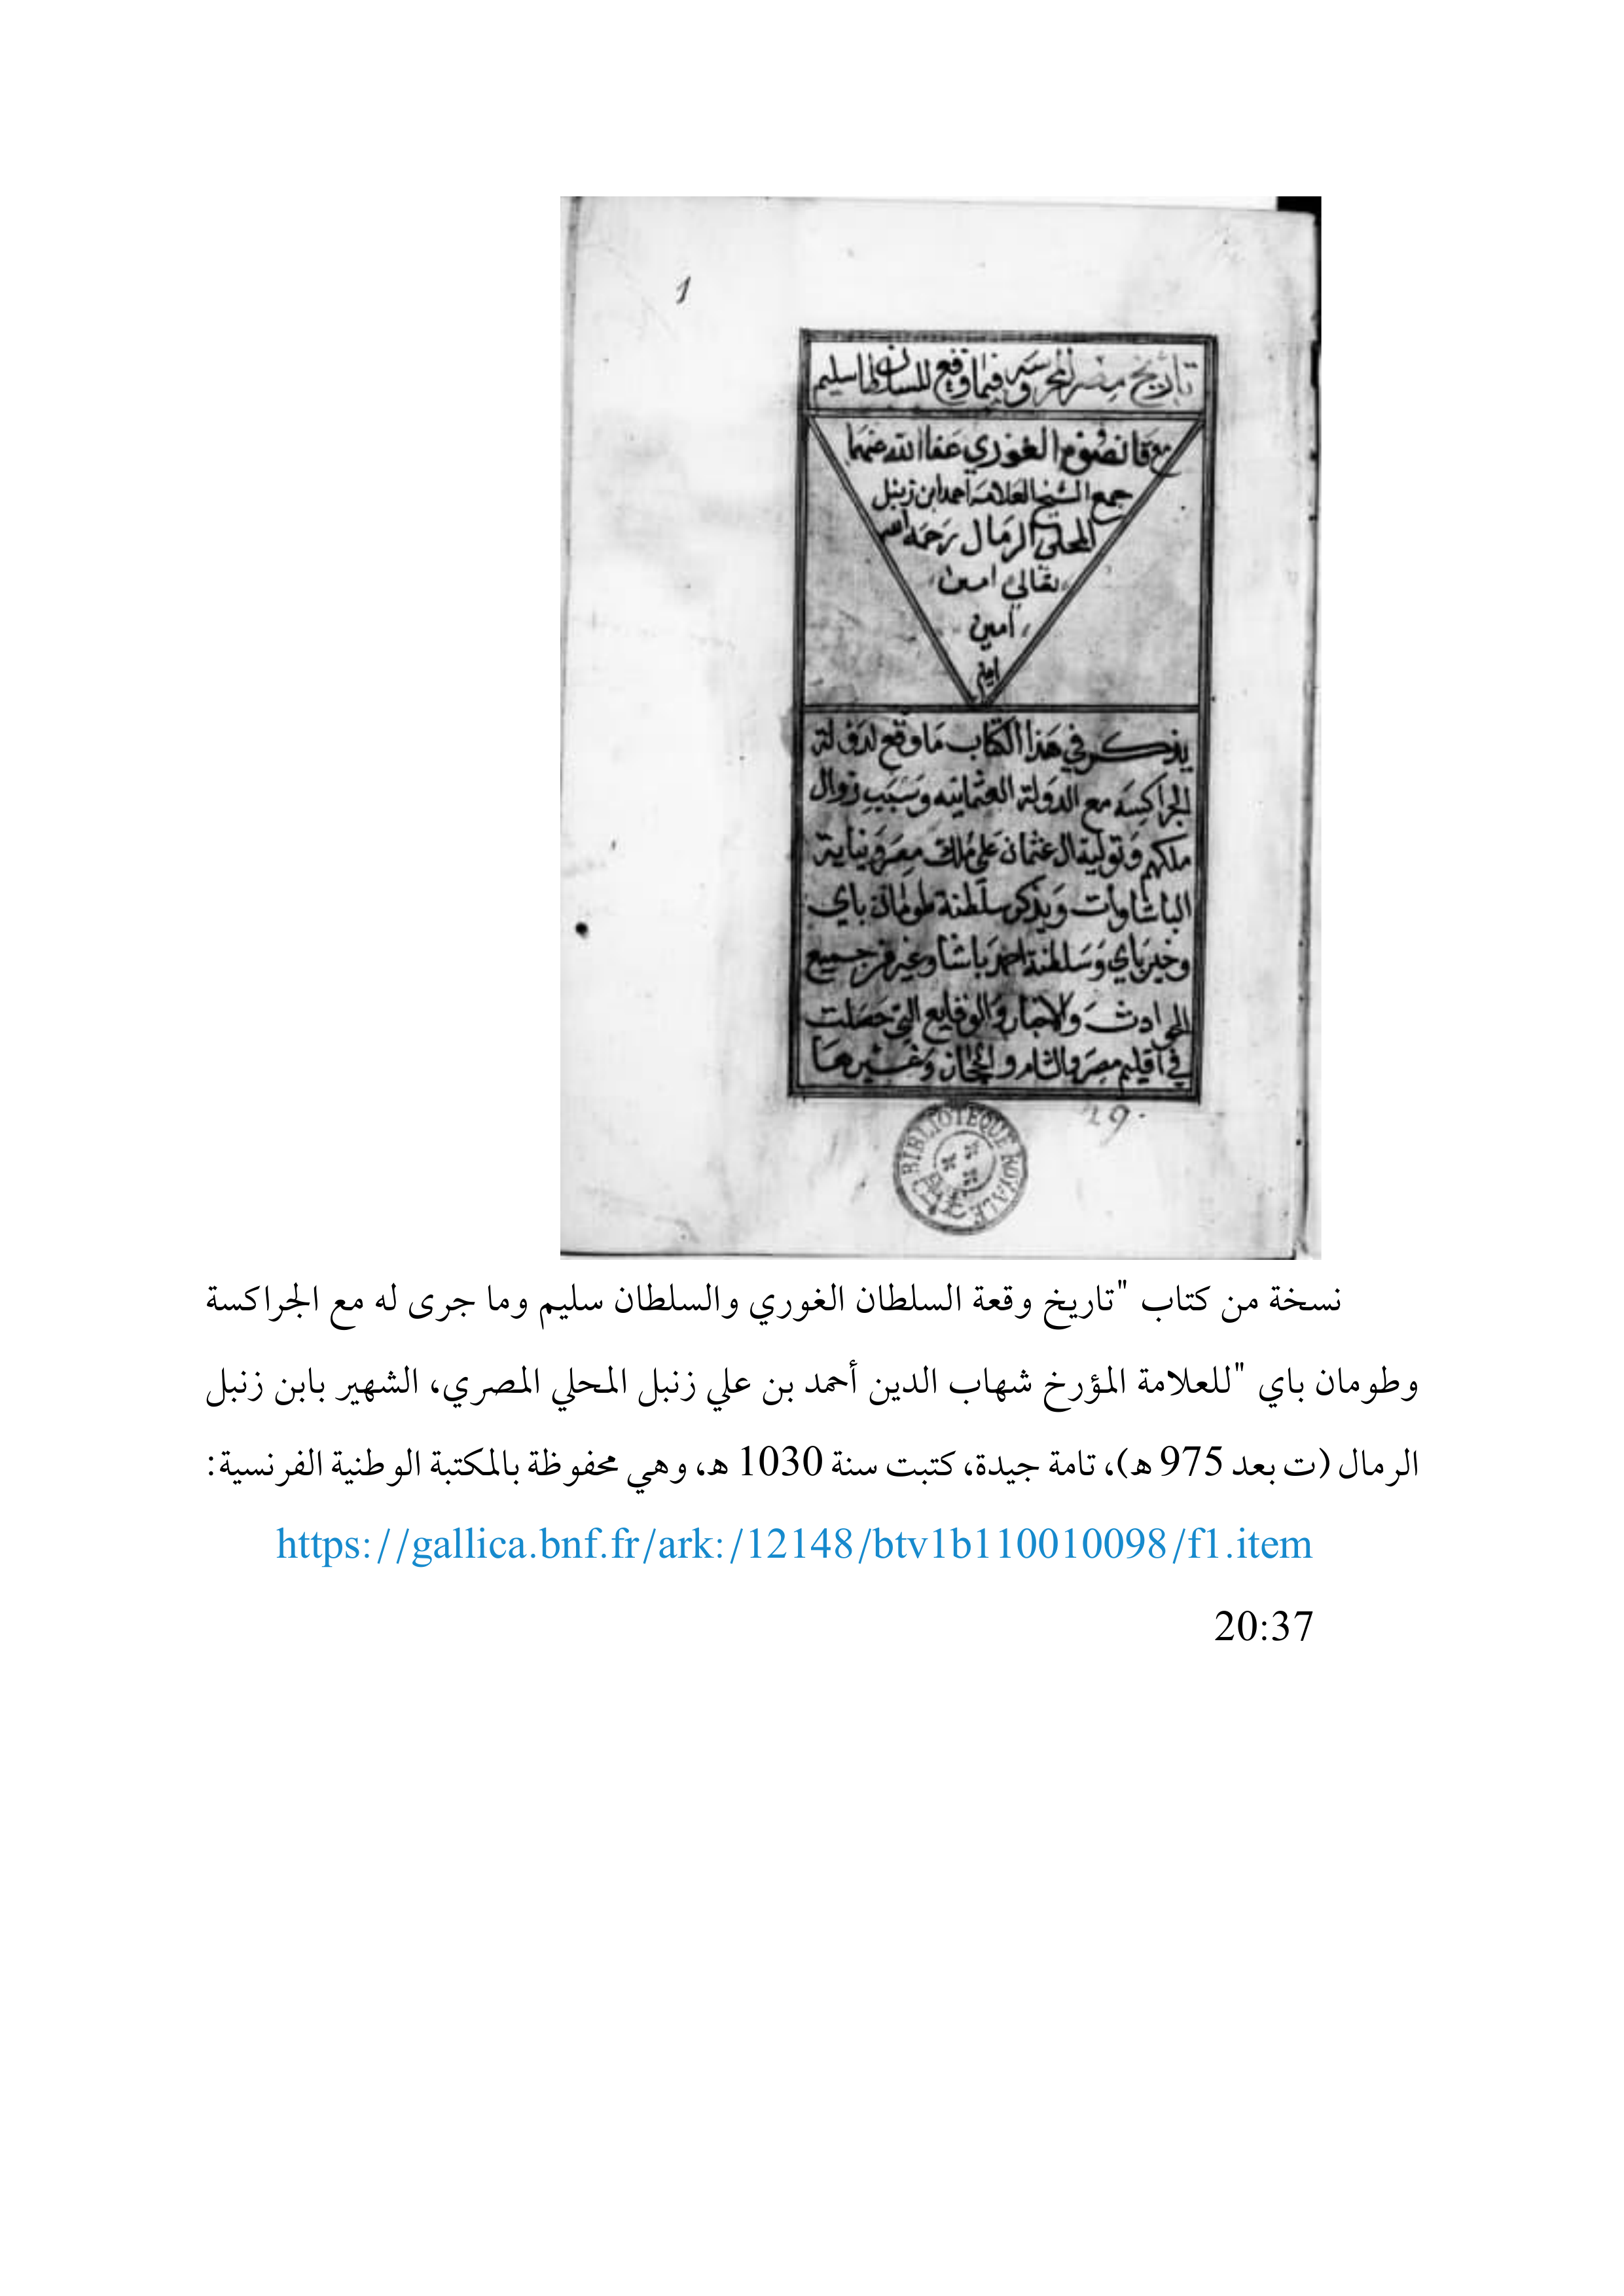 1
تاريخ مصر المحروسه فيما وقع للسلطان سليم
مع قانصوه الغوري عفا الله عنهما
جمع الشيخ العلامه احمد ابن زنبل
المحلي الرمال رحمه الله
تعالي امين
امين
امين
يذكر في هذا الكتاب ما وقع لدولة
الجراكسه مع الدولة العثمانيه وسبب زوال
ملكهم وتولية ال عثمان علي ملك مصر ونيابة
الباشاوات ويذكر سلطنة طومان باي
وخير باي وسلطنة احمد باشا وغير جميع
الحوادث والاخبار والوقايع التي حصلت
في اقليم مصر والشام والحجاز وغيرها
19.
BIBLIOTEQUE ROYALE
نسخة من كتاب "تاريخ وقعة السلطان الغوري والسلطان سليم وما جرى له مع الجراكسة
وطومان باي "للعلامة المؤرخ شهاب الدين أحمد بن علي زنبل المحلي المصري، الشهير بابن زنبل
الرمال (ت بعد 975 ه)، تامة جيدة، كتبت سنة 1030 ه، وهي محفوظة بالمكتبة الوطنية الفرنسية:
https://gallica.bnf.fr/ark:/12148/btv1b110010098/f1.item
20:37